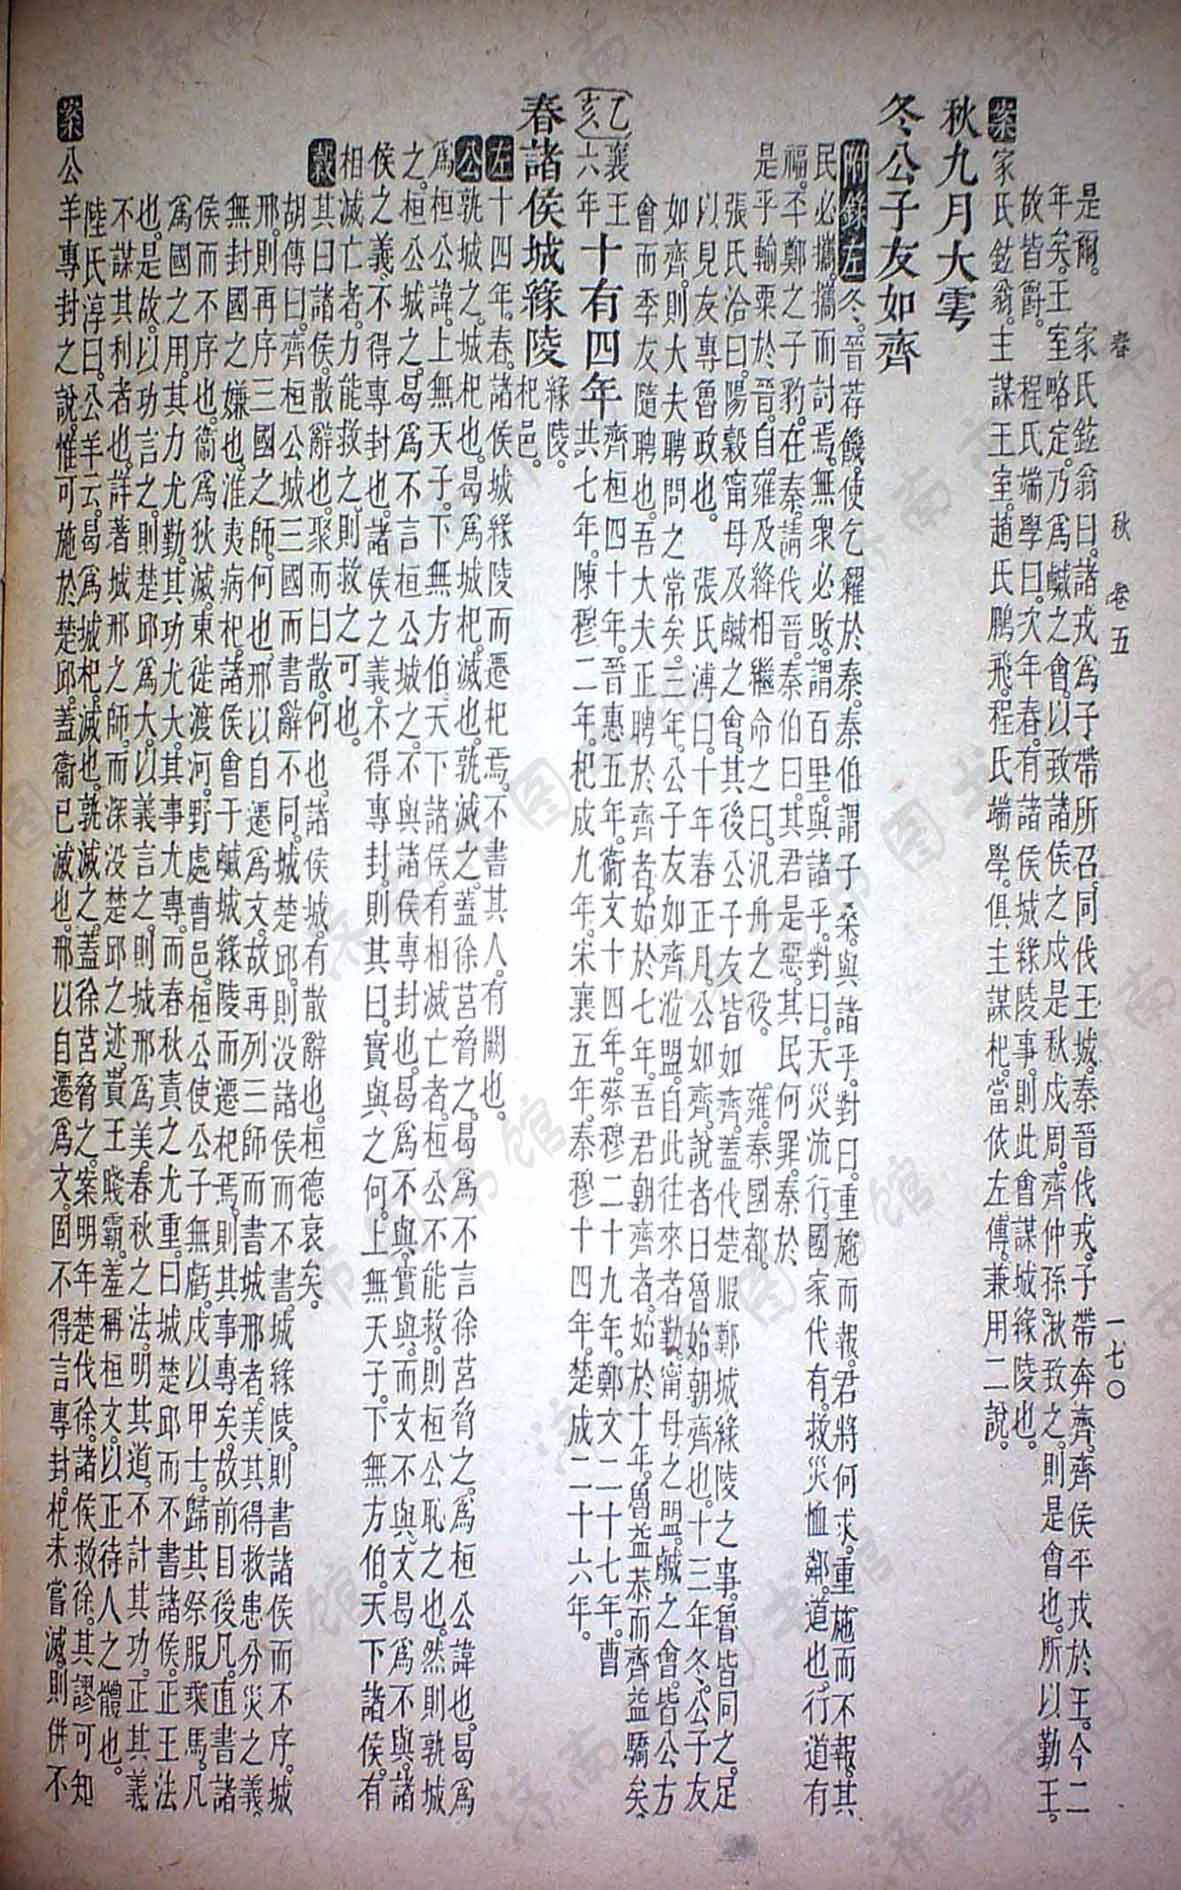 春 秋 卷五 一七〇
是爾。 家氏鉉翁曰。諸戎爲子帶所召。同伐王城。秦晉伐戎。子帶奔齊。齊侯平戎於王。今二
年矣。王室略定。乃爲鹹之會。以致諸侯之戍。是秋戍周。齊仲孫湫致之。則是會也。所以勤王。
故皆爵。 程氏端學曰。次年春。有諸侯城緣陵事。則此會謀城緣陵也。
案家氏鉉翁。主謀王室。趙氏鵬飛。程氏端學。俱主謀杞。當依左傳。兼用二說。
秋九月大雩
冬公子友如齊
附錄左冬。晉荐饑。使乞糴於秦。秦伯謂子桑。與諸乎。對曰。重施而報。君將何求。重施而不報。其
民必攜。攜而討焉。無衆必敗。謂百里。與諸乎。對曰。天災流行。國家代有。救災恤鄰。道也。行道有
福。丕鄭之子豹。在秦。請伐晉。秦伯曰。其君是惡。其民何罪。秦於
是乎輸粟於晉。自雍及絳相繼。命之曰。汎舟之役。 雍。秦國都。
張氏洽曰。陽穀甯母及鹹之會。其後公子友皆如齊。蓋伐楚服鄭城緣陵之事。魯皆同之。足
以見友專魯政也。 張氏溥曰。十年春正月。公如齊。說者曰魯始朝齊也。十三年冬。公子友
如齊。則大夫聘問之常矣。三年。公子友如齊涖盟。自此往來者勤。甯母之盟。鹹之會。皆公方
會而季友隨聘也。吾大夫正聘於齊者。始於七年。吾君朝齊者。始於十年。魯益恭而齊益驕矣。
乙亥 襄王六年 十有四年 齊桓四十年。晉惠五年。衞文十四年。蔡穆二十九年。鄭文二十七年。曹
共七年。陳穆二年。杞成九年。宋襄五年。秦穆十四年。楚成二十六年。
春諸侯城緣陵 緣陵。杞邑。
左十四年。春。諸侯城緣陵而遷杞焉。不書其人。有闕也。
公孰城之。城杞也。曷爲城杞。滅也。孰滅之。蓋徐莒脅之。曷爲不言徐莒脅之。爲桓公諱也。曷爲
爲桓公諱。上無天子。下無方伯。天下諸侯。有相滅亡者。桓公不能救。則桓公恥之也。然則孰城
之。桓公城之。曷爲不言桓公城之。不與諸侯專封也。曷爲不與。實與。而文不與。文曷爲不與。諸
侯之義。不得專封也。諸侯之義。不得專封。則其曰。實與之何。上無天子。下無方伯。天下諸侯。有
相滅亡者。力能救之。則救之可也。
穀其曰諸侯。散辭也。聚而曰散。何也。諸侯城。有散辭也。桓德衰矣。
胡傳曰。齊桓公城三國而書辭不同。城楚邱。則沒諸侯而不書。城緣陵。則書諸侯而不序。城
邢。則再序三國之師。何也。邢以自遷爲文。故再列三師而書城邢者。美其得救患分災之義。
無封國之嫌也。淮夷病杞。諸侯會于鹹。城緣陵而遷杞焉。則其事專矣。故前目後凡。直書諸
侯而不序也。衞爲狄滅。東徙渡河。野處曹邑。桓公使公子無虧。戍以甲士。歸其祭服乘馬。凡
爲國之用。其力尤勤。其功尤大。其事尤專。而春秋責之尤重。曰城楚邱而不書諸侯。正王法
也。是故以功言之。則楚邱爲大。以義言之。則城邢爲美。春秋之法。明其道。不計其功。正其義。
不謀其利者也。詳著城邢之師。而深沒楚邱之迹。貴王賤霸。羞稱桓文。以正待人之體也。
陸氏淳曰。公羊云。曷爲城杞。滅也。孰滅之。蓋徐莒脅之。案明年楚伐徐。諸侯救徐。其謬可知
案公羊專封之說。惟可施於楚邱。蓋衞已滅也。邢以自遷爲文。固不得言專封。杞未嘗滅。則併不